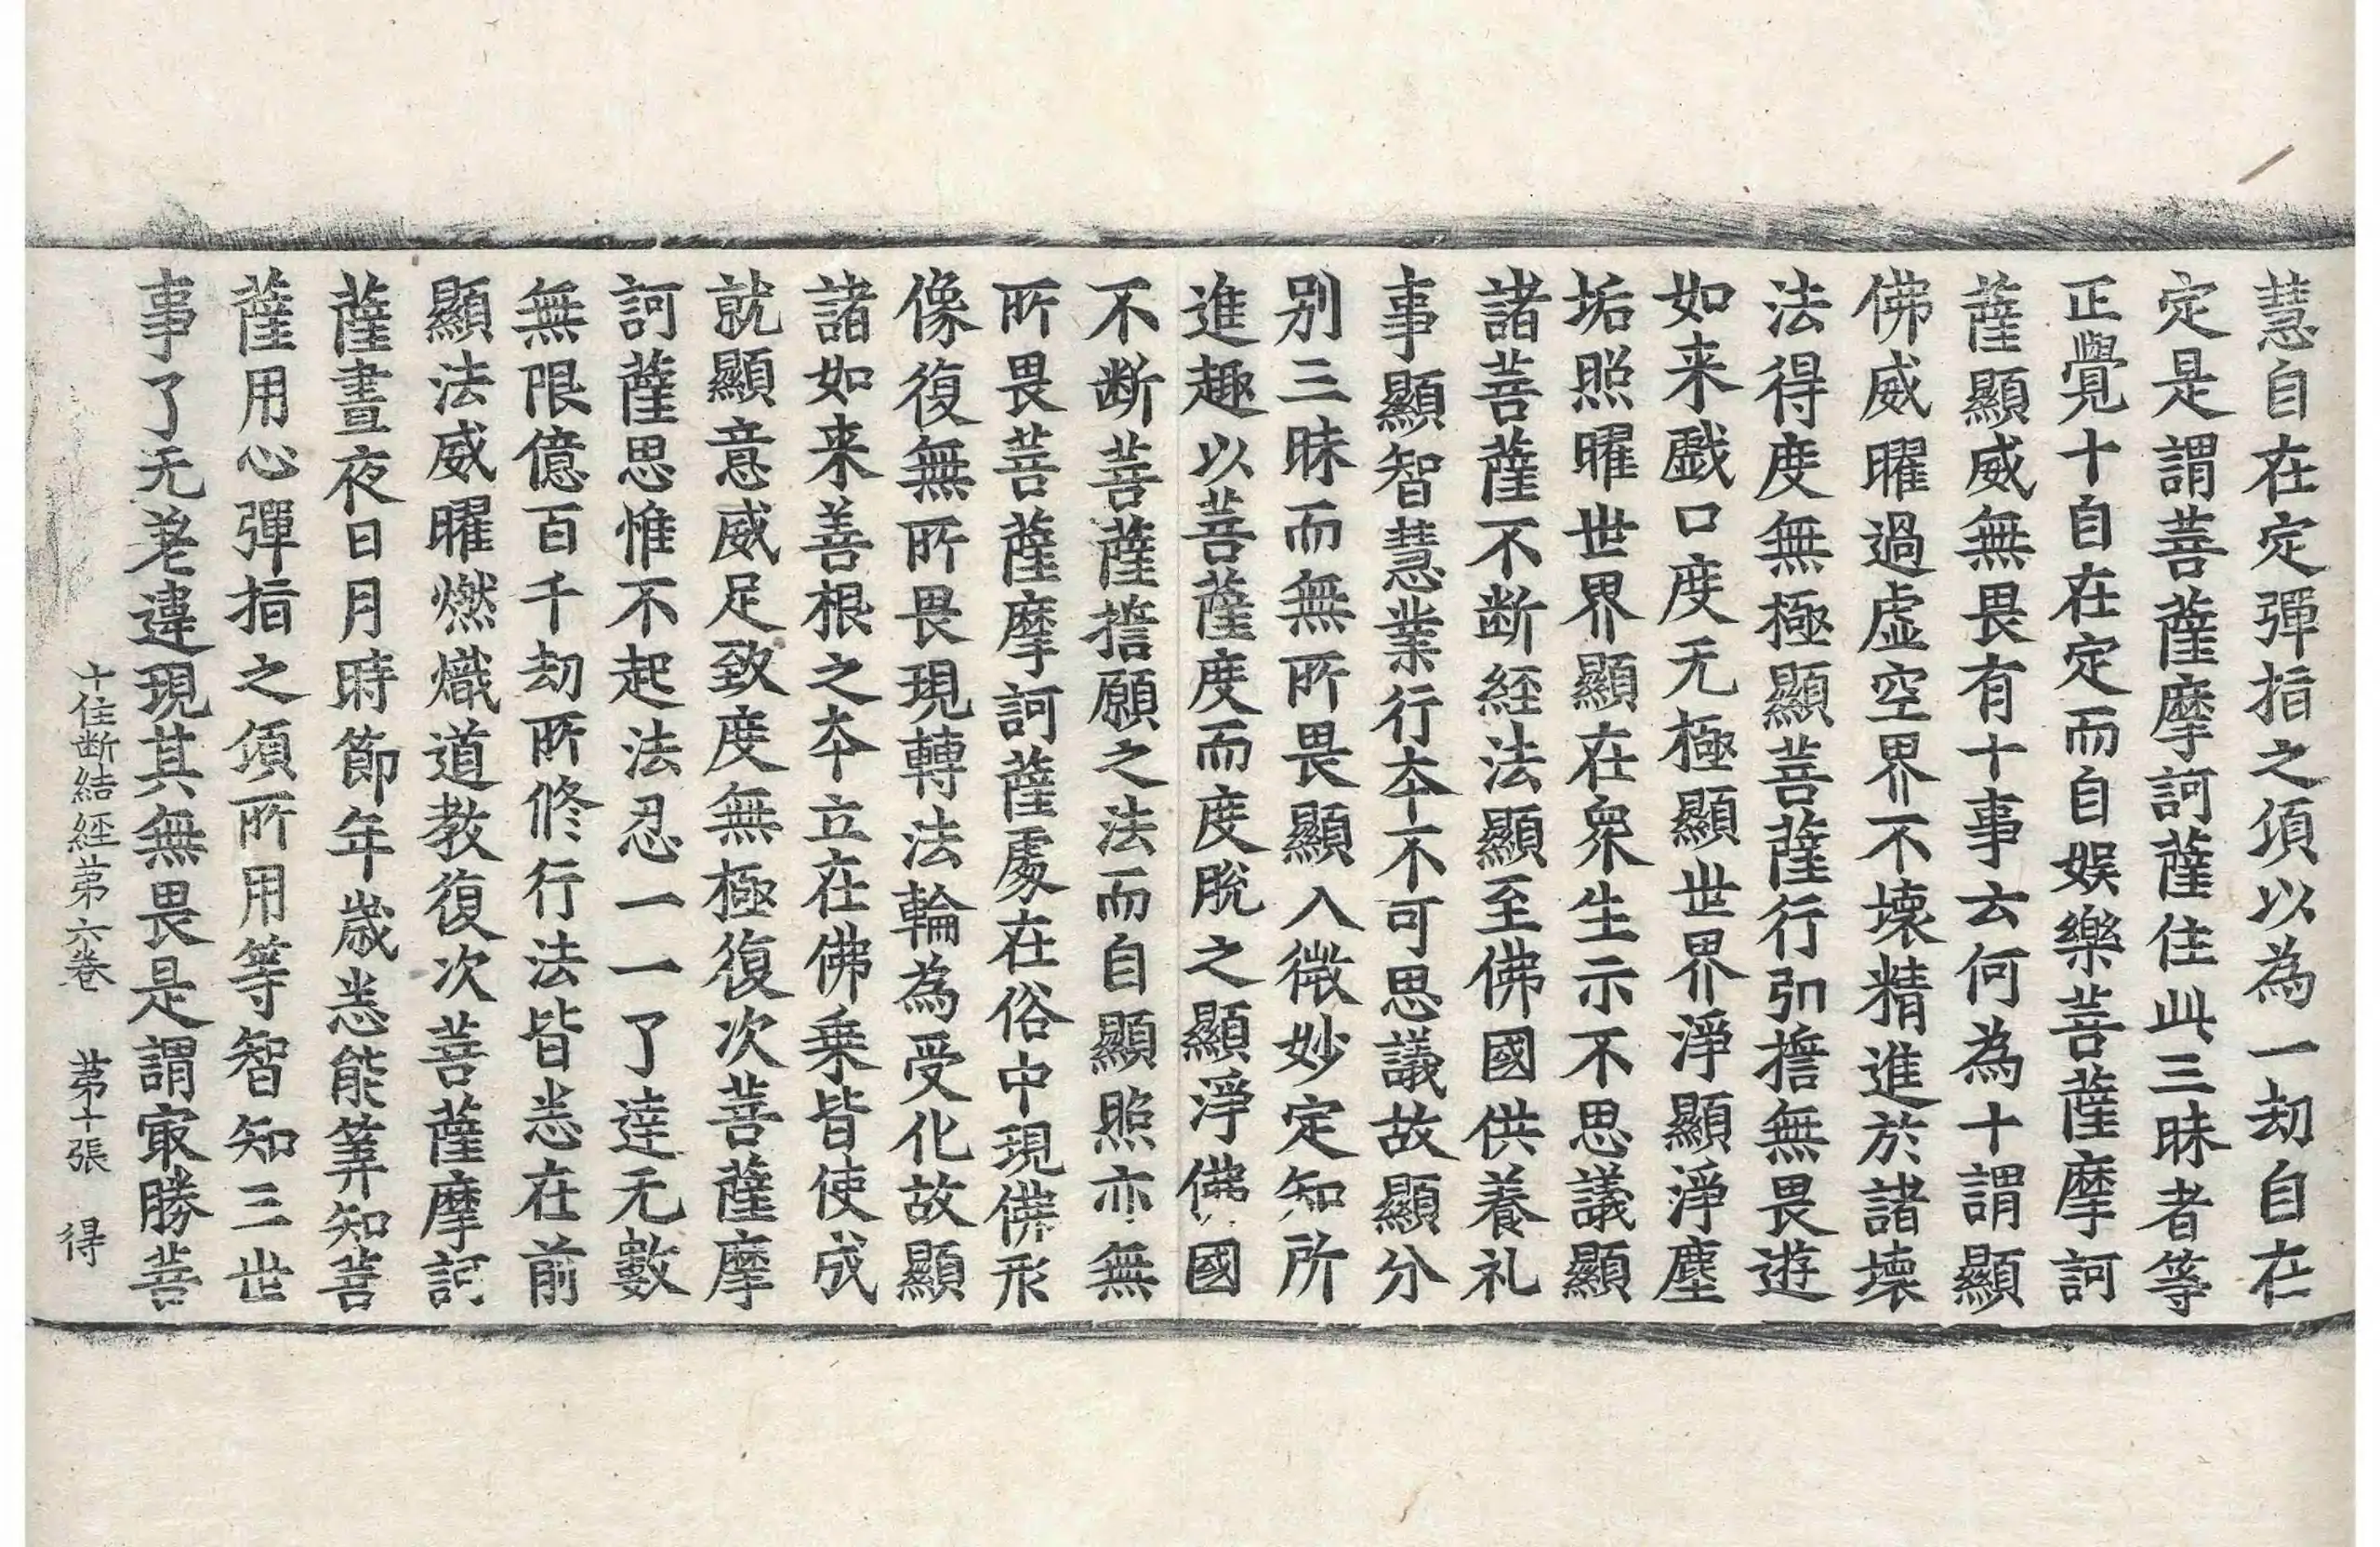 慧自在定彈指之頃以為一劫自在
定是謂菩薩摩訶薩住此三昧者等
正覺十自在定而自娛樂菩薩摩訶
薩顯威無畏有十事云何為十謂顯
佛威曜過虛空界不壞精進於諸壞
法得度無極顯菩薩行引擔無畏遊
如来戱口度无極顯世界淨顯淨塵
垢照曜世界顯在衆生示不思議顯
諸菩薩不断経法顯至佛國供養礼
事顯智慧業行夲不可思議故顯分
別三昧而無所畏顯入微妙定知所
進趣以菩薩度而度脫之顯淨佛國
不断菩薩誓願之法而自顯照亦無
所畏菩薩摩訶薩處在俗中現佛形
像復無所畏現轉法輪為受化故顯
諸如来善根之夲立在佛乗皆使成
就顯意威足致度無極復次菩薩摩
訶薩思惟不起法忍一一了達无數
無限億百千劫所修行法皆悉在前
顯法威曜燃熾道教復次菩薩摩訶
薩晝夜日月時節年歲悉能筭知菩
薩用心彈指之頃所用等智知三世
事了无差違現其無畏是謂㝡勝菩
十住断結經苐六卷 苐十張 得